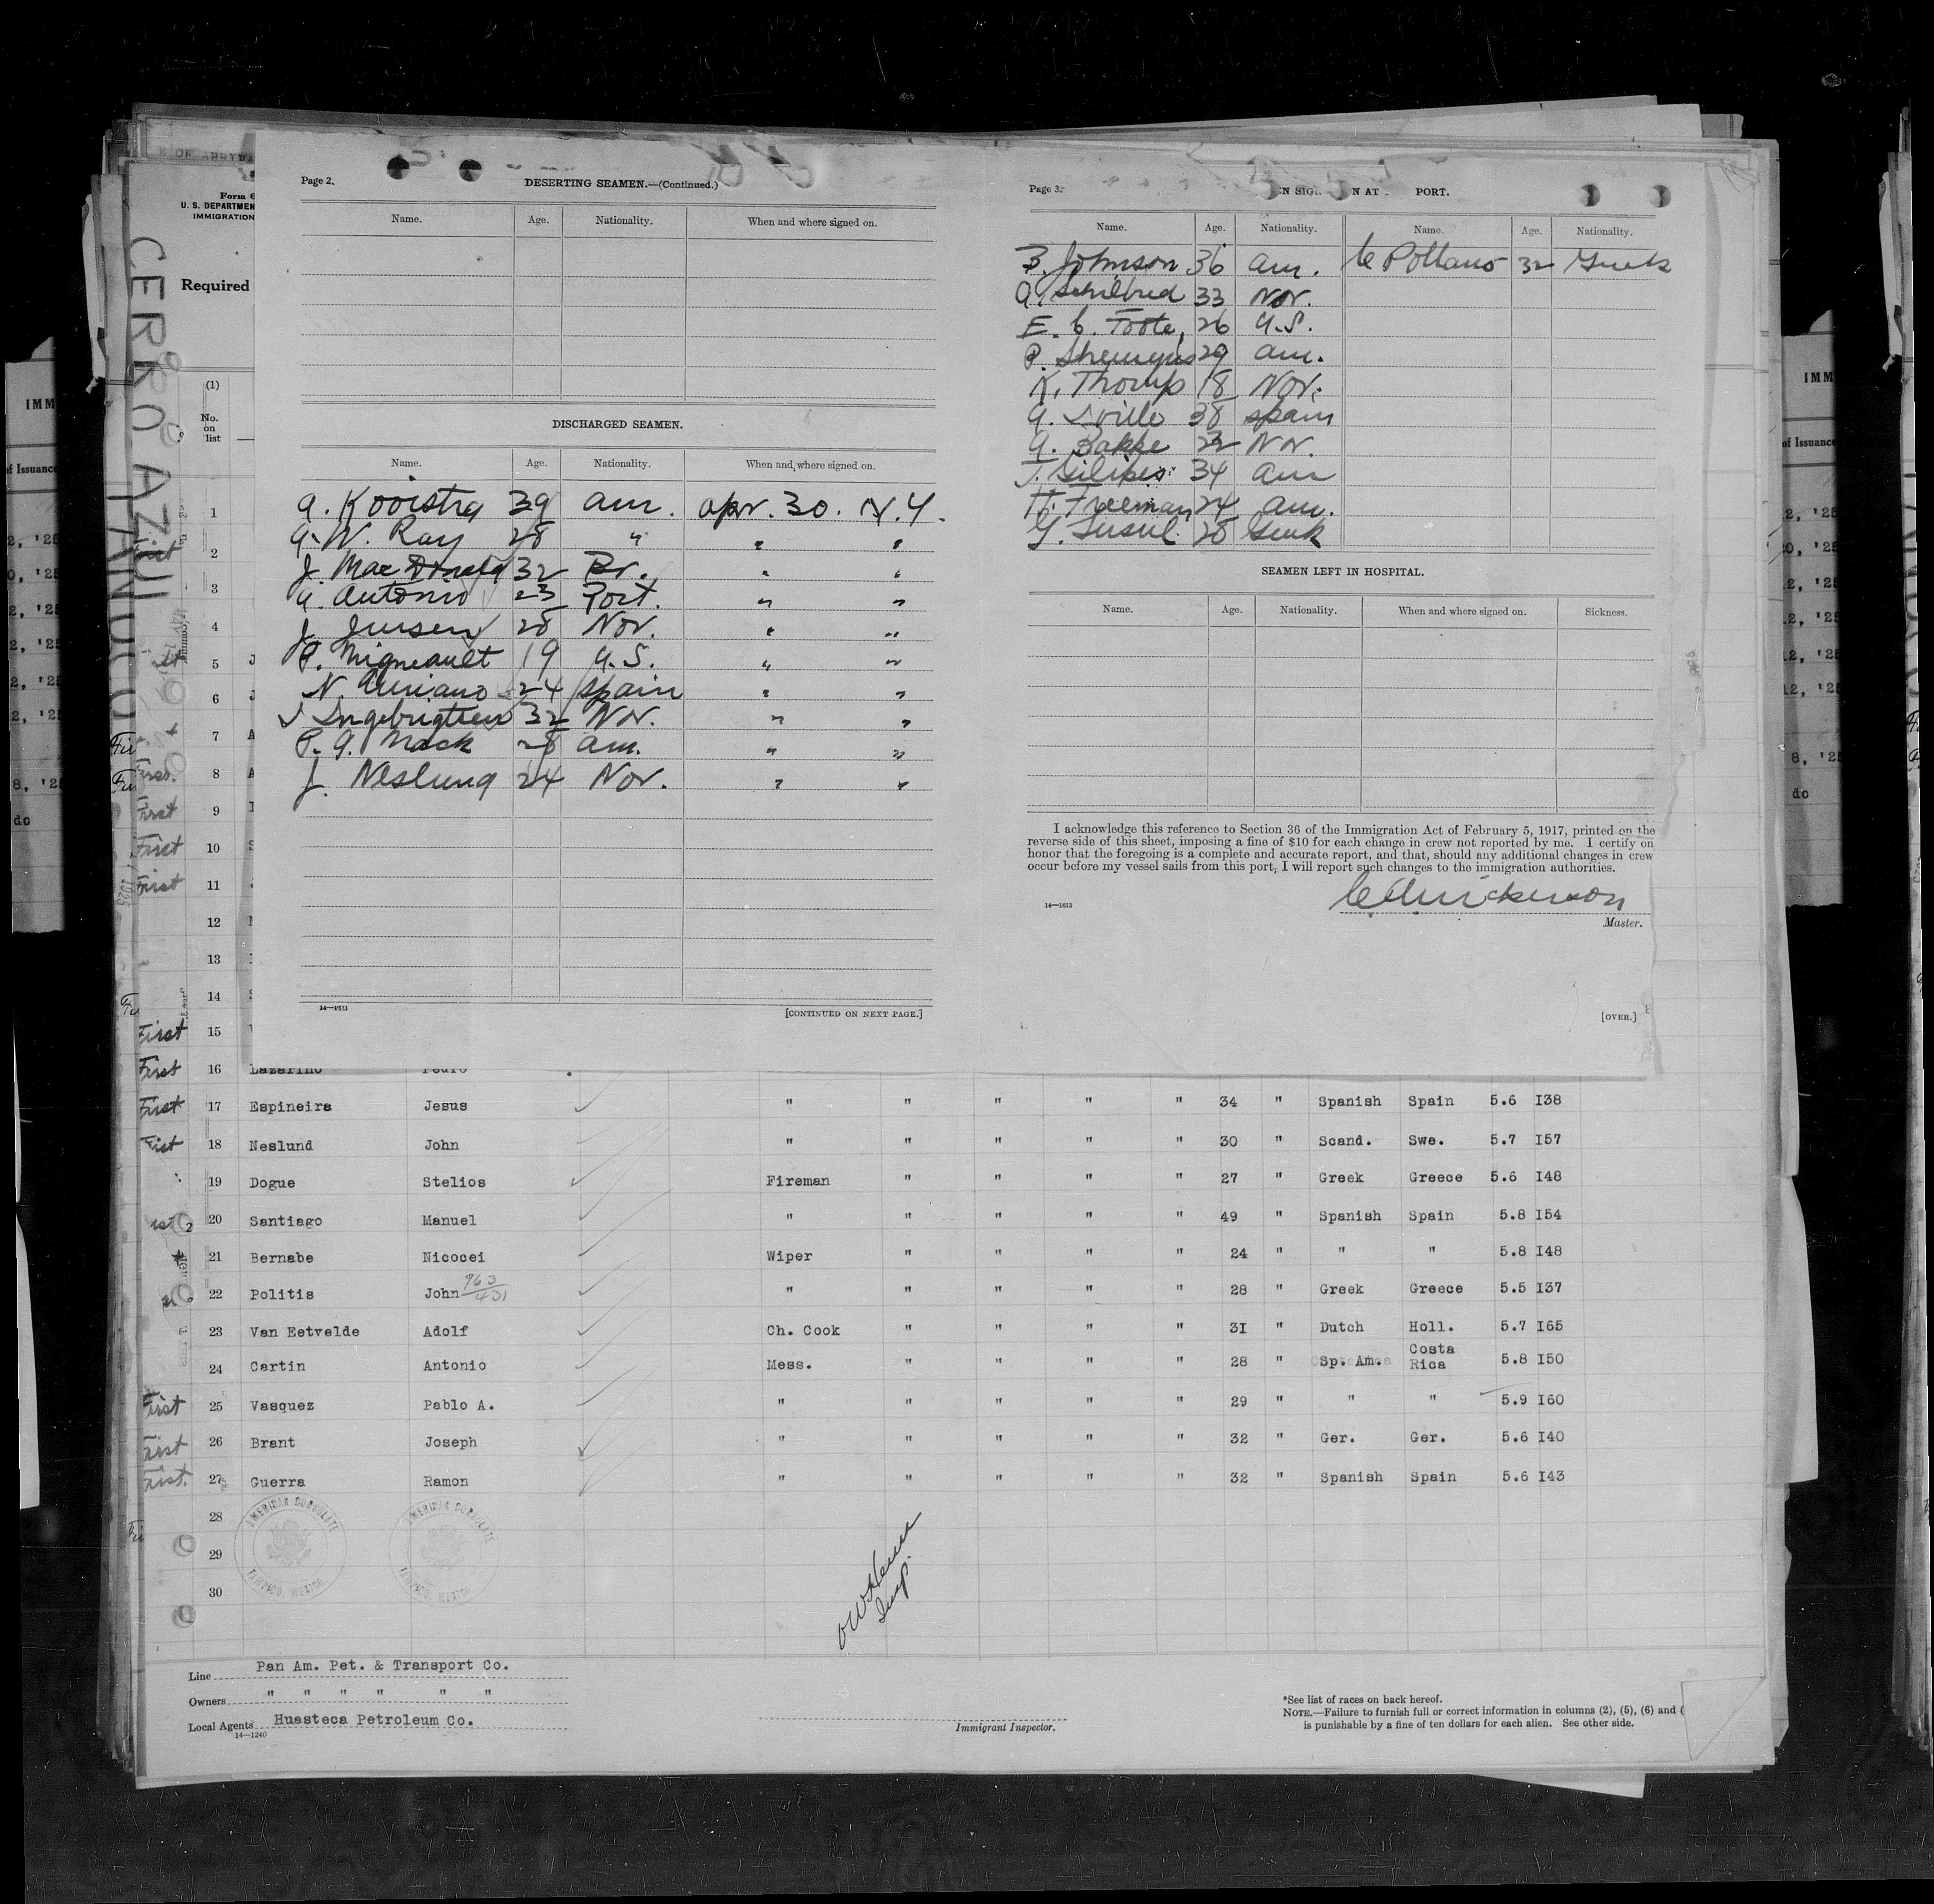 Page 2.
DESERTING SEAMEN.—(Continued.)
Name. Age. Nationality. When and where signed on.
DISCHARGED SEAMEN.
Name. Age. Nationality. When and where signed on.
A. Kooistra 39 Am. Apr. 30. N.Y.
A. W. Ray 28 " " "
J. MacDonald 32 Br. " "
A. Antonio 23 Port. " "
J. Jensen 28 Nor. " "
P. Migneault 19 U.S. " "
N. 24 Spain " "
J Ingebrigtsen 32 Nor. " "
P. A. Mack 28 Am. " "
J. Neslund 24 Nor. " "
14—1613
[CONTINUED ON NEXT PAGE.]
Page 3.
EN SIG N AT PORT.
Name. Age. Nationality. Name. Age. Nationality.
B. Johnson 36 Am. 32 Greek
33 Nor.
E. C. Foote, 26 U.S.
29 Am.
K. Thorup 18 Nor.
38 Spain
A. Bakke 22 Nor.
34 Am
H. Freeman 24 Am.
28 Greek
SEAMEN LEFT IN HOSPITAL.
Name. Age. Nationality. When and where signed on. Sickness.
I acknowledge this reference to Section 36 of the Immigration Act of February 5, 1917, printed on the
reverse side of this sheet, imposing a fine of $10 for each change in crew not reported by me. I certify on
honor that the foregoing is a complete and accurate report, and that, should any additional changes in crew
occur before my vessel sails from this port, I will report such changes to the immigration authorities.
14—1613
Master.
[OVER.]
Form 6
U. S. DEPARTMEN
IMMIGRATION
Required
CERRO AZUL
(1)
No.
on
list
1
2
3
4
5 J
6 J
7 A
8 A
First 9
First 10 S
First 11
12
13
14 S
First 15
First 16 Lazarino Pedro
First 17 Espineira Jesus " " " " " 34 " Spanish Spain 5.6 I38
First 18 Neslund John " " " " " 30 " Scand. Swe. 5.7 I57
19 Dogue Stelios Fireman " " " " 27 " Greek Greece 5.6 I48
20 Santiago Manuel " " " " " 49 " Spanish Spain 5.8 I54
21 Bernabe Nicocei Wiper " " " " 24 " " " 5.8 I48
22 Politis John 963/431 " " " " " 28 " Greek Greece 5.5 I37
23 Van Eetvelde Adolf Ch. Cook " " " " 31 " Dutch Holl. 5.7 I65
24 Cartin Antonio Mess. " " " " 28 " Sp. Am. Costa Rica 5.8 I50
First 25 Vasquez Pablo A. " " " " " 29 " " " 5.9 I60
First 26 Brant Joseph " " " " " 32 " Ger. Ger. 5.6 I40
First. 27 Guerra Ramon " " " " " 32 " Spanish Spain 5.6 I43
28
29
30
AMERICAN CONSULATE
TAMPICO, MEXICO
AMERICAN CONSULATE
TAMPICO, MEXICO
Insp.
Line Pan Am. Pet. & Transport Co.
Owners " " " " " "
Local Agents Huasteca Petroleum Co.
14—1240
Immigrant Inspector.
*See list of races on back hereof.
NOTE.—Failure to furnish full or correct information in columns (2), (5), (6) and (
is punishable by a fine of ten dollars for each alien. See other side.